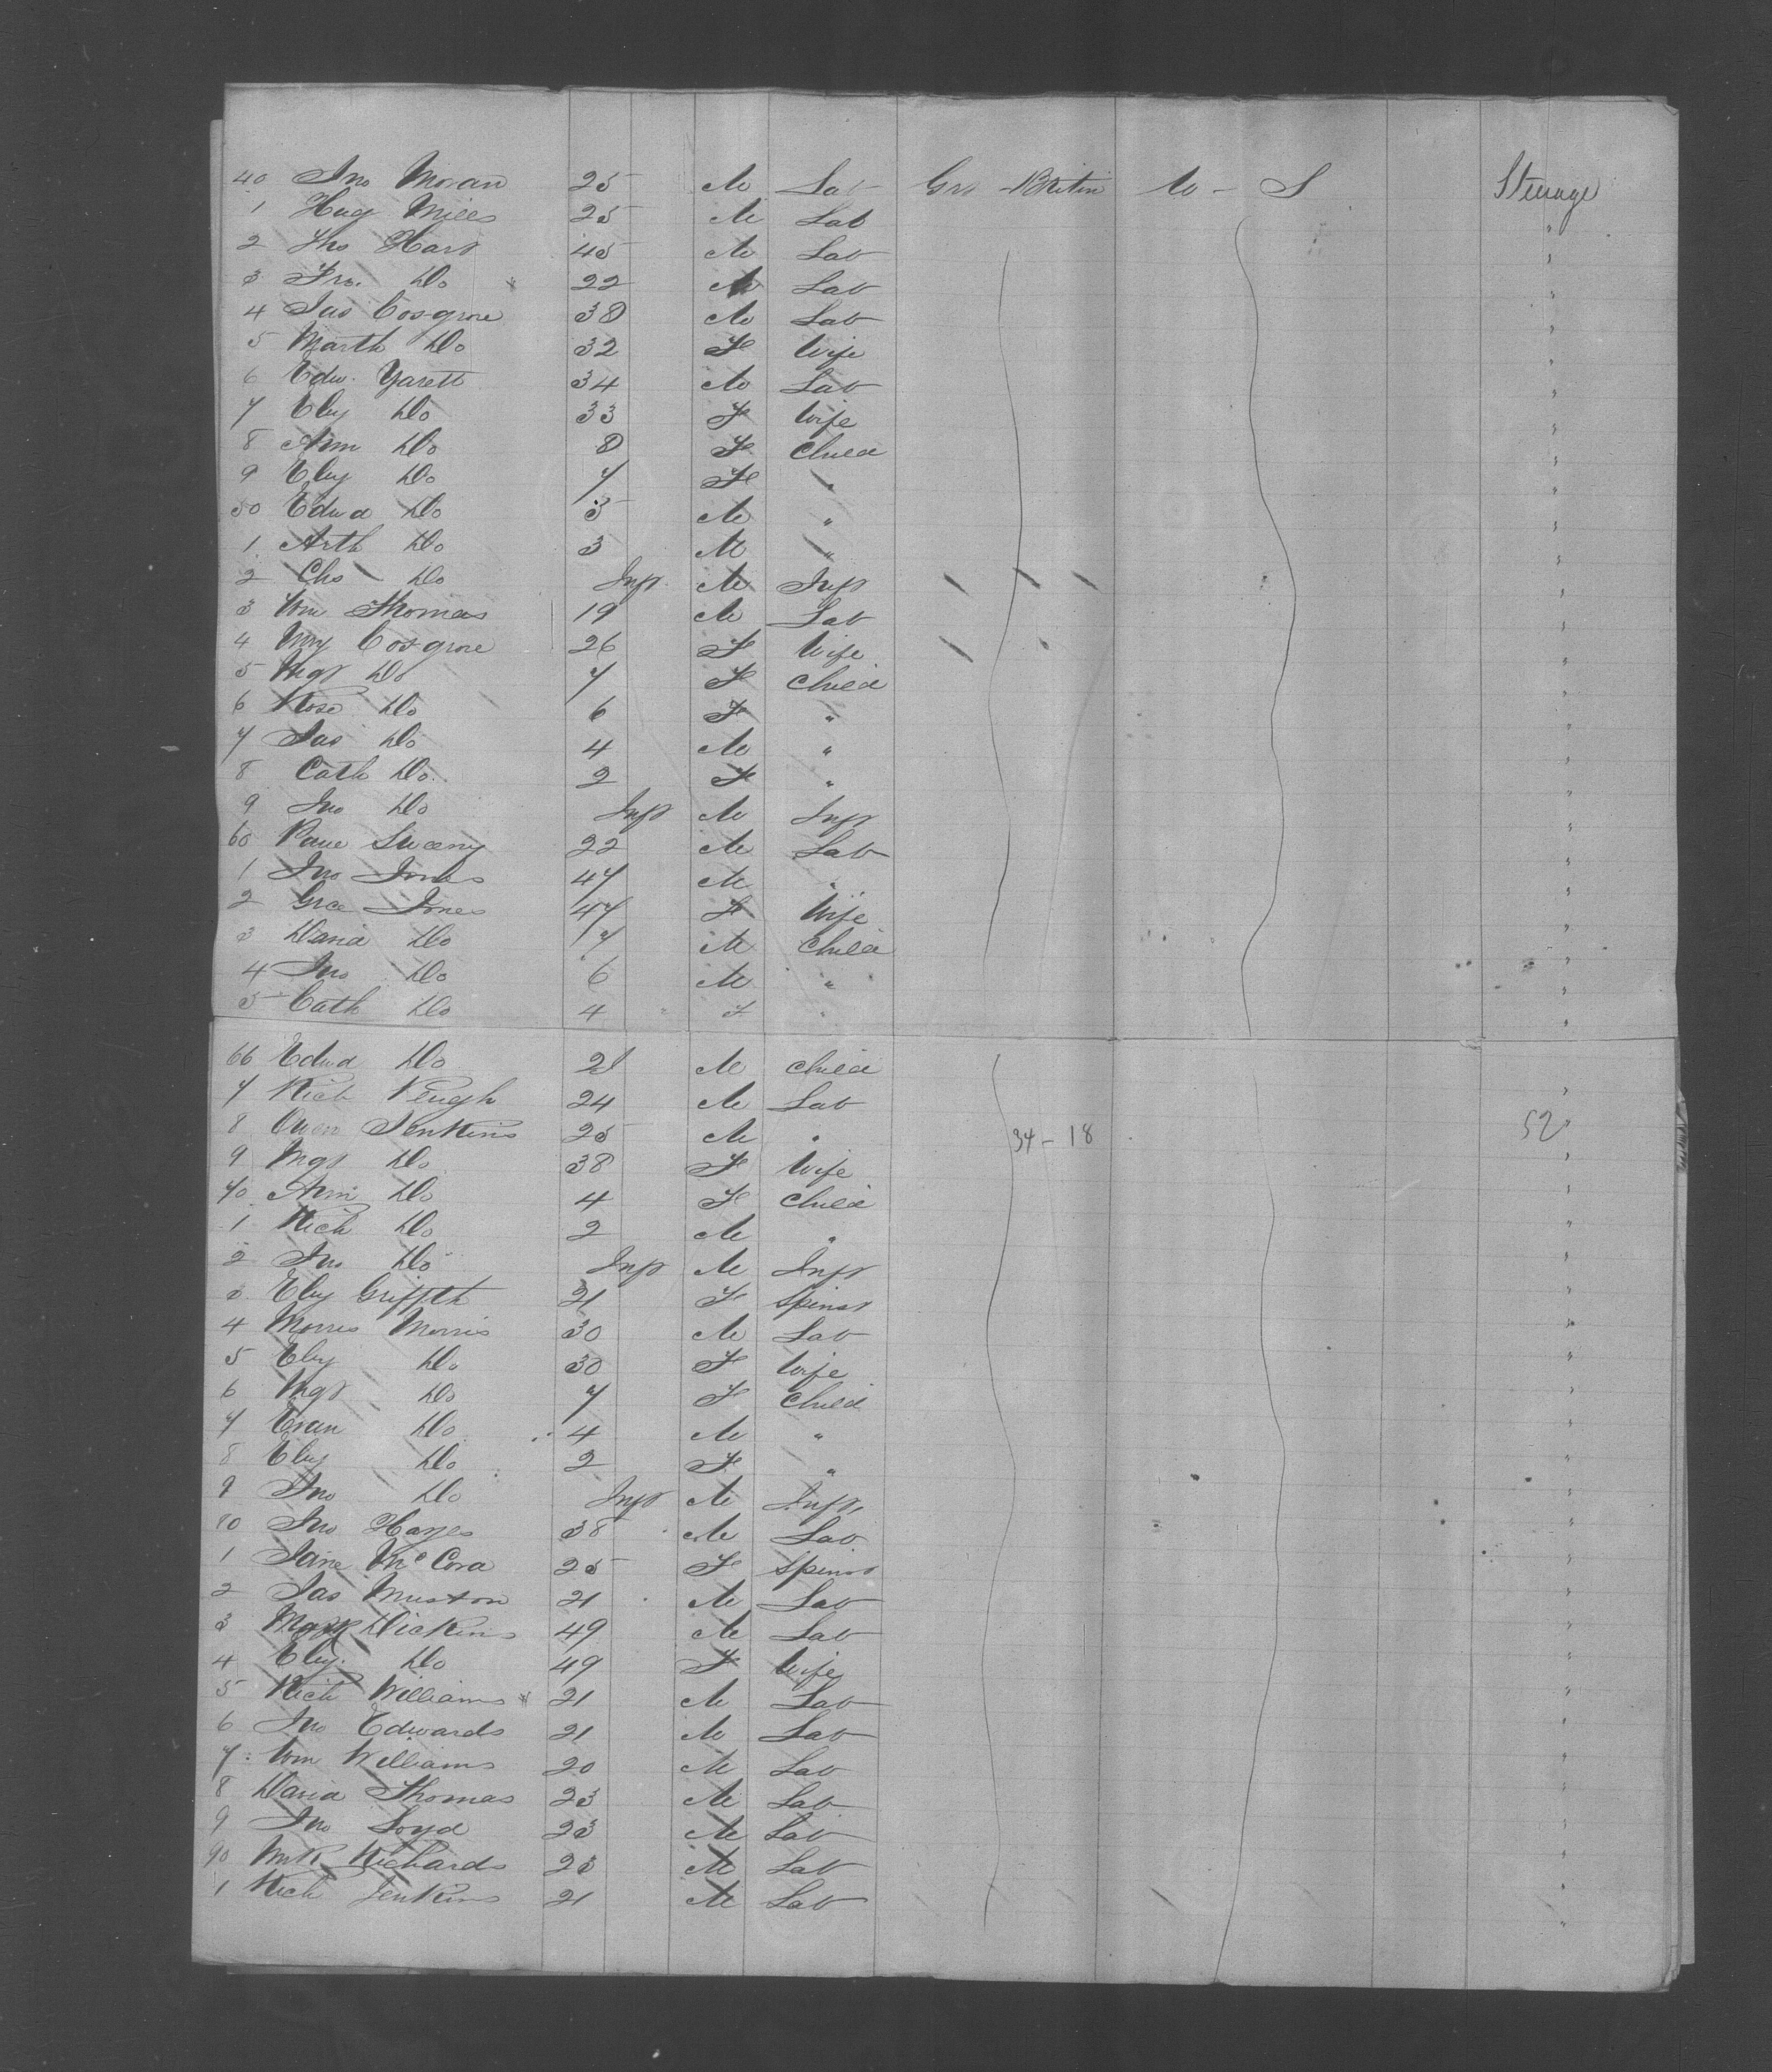 40 Jno Moran 25 M Lab Gre - Britin U - S Steerage
1 Hug Mills 25 M Lab "
2 Tho Hart 45 M Lab "
3 Do 22 M Lab "
4 Jas Cosgrove 38 M Lab "
5 Marth Do 32 F Wife "
6 Edw. Yarett 34 M Lab "
7 Eliz Do 33 F Wife "
8 Ann Do 8 F Child "
9 Eliz Do 7 F " "
50 Edwd Do 5 M " "
1 Arth Do 3 M " "
2 Chs Do Inft M Inft "
3 Wm Thomas 19 M Lab "
4 Mry Cosgrove 26 F Wife "
5 Mgt Do 7 F Child "
6 Rose Do 6 F " "
7 Jas Do 4 M " "
8 Cath Do 2 F " "
9 Jno Do Inft M Inft "
60 Sweeny 22 M Lab "
1 Jno Jones 47 M " "
2 Grce Jones 47 F Wife "
3 David Do 7 M Child "
4 Jno Do 6 M " "
5 Cath Do 4 " F " "
66 Edwd Do 2 M Child
7 Rich Peugh 24 M Lab "
8 Owen Jenkins 25 M " 34 - 18 52 "
9 Mgt Do 38 F Wife "
70 Ann Do 4 F Child "
1 Rich Do 2 M " "
2 Jno Do Inft M Inft "
3 Eliz Griffith 21 F Spinst "
4 Morris Morris 30 M Lab "
5 Eliz Do 30 F Wife "
6 Mgt Do 7 F Child "
7 Evan Do 4 M " "
8 Eliz Do 2 F " "
9 Jno Do Inft M Inft "
80 Jno Hayes 38 M Lab "
1 Jane McCora 25 F Spinst "
2 Jas Muston 21 M Lab "
3 Dickins 49 M Lab "
4 Eliz Do 49 F Wife "
5 Rich Williams 21 M Lab "
6 Jno Edwards 21 M Lab "
7 Wm Williams 20 M Lab "
8 David Thomas 23 M Lab "
9 Jno Loyd 23 M Lab "
90 Richards 23 M Lab "
1 Rich Jenkins 21 M Lab "